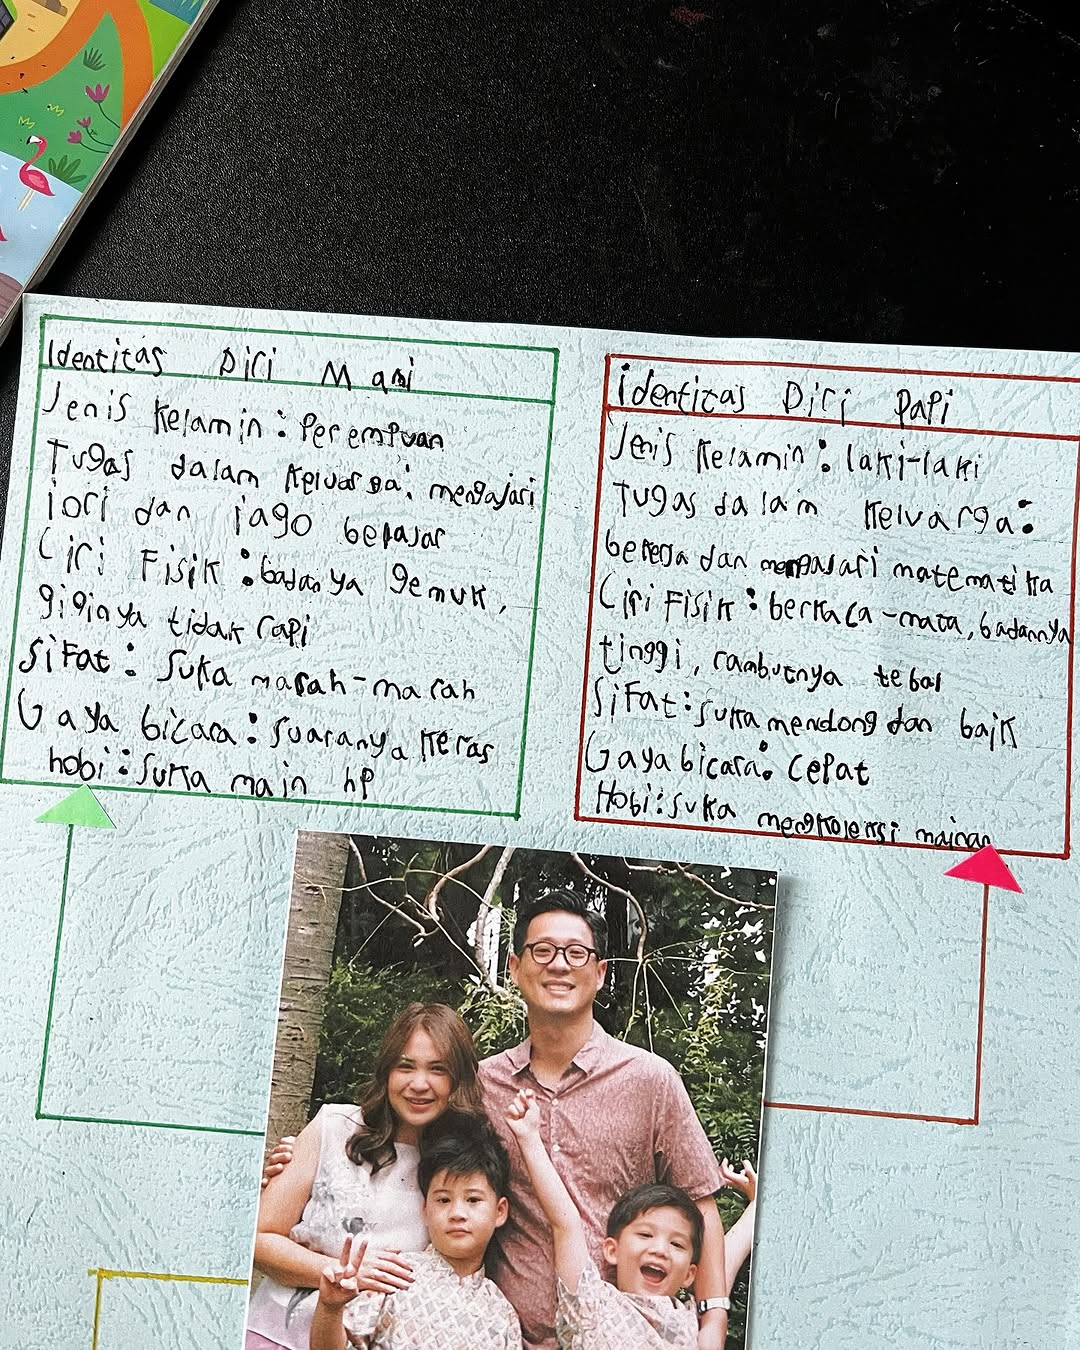 Identitas Diri Mami
Jenis kelamin : Perempuan
Tugas dalam keluarga : mengajari
jori dan jago belajar
Ciri Fisik : badanya gemuk,
giginya tidak rapi
Sifat : Suka marah-marah
Gaya bicara : Suaranya keras
hobi : Suka main hp
identitas Diri Papi
Jenis kelamin : laki-laki
Tugas dalam keluarga :
bekerja dan mengajari matematika
Ciri Fisik : berkaca-mata, badannya
tinggi, rambutnya tebal
Sifat : suka mendong dan baik
Gaya bicara : cepat
Hobi : suka mengkoleksi mainan